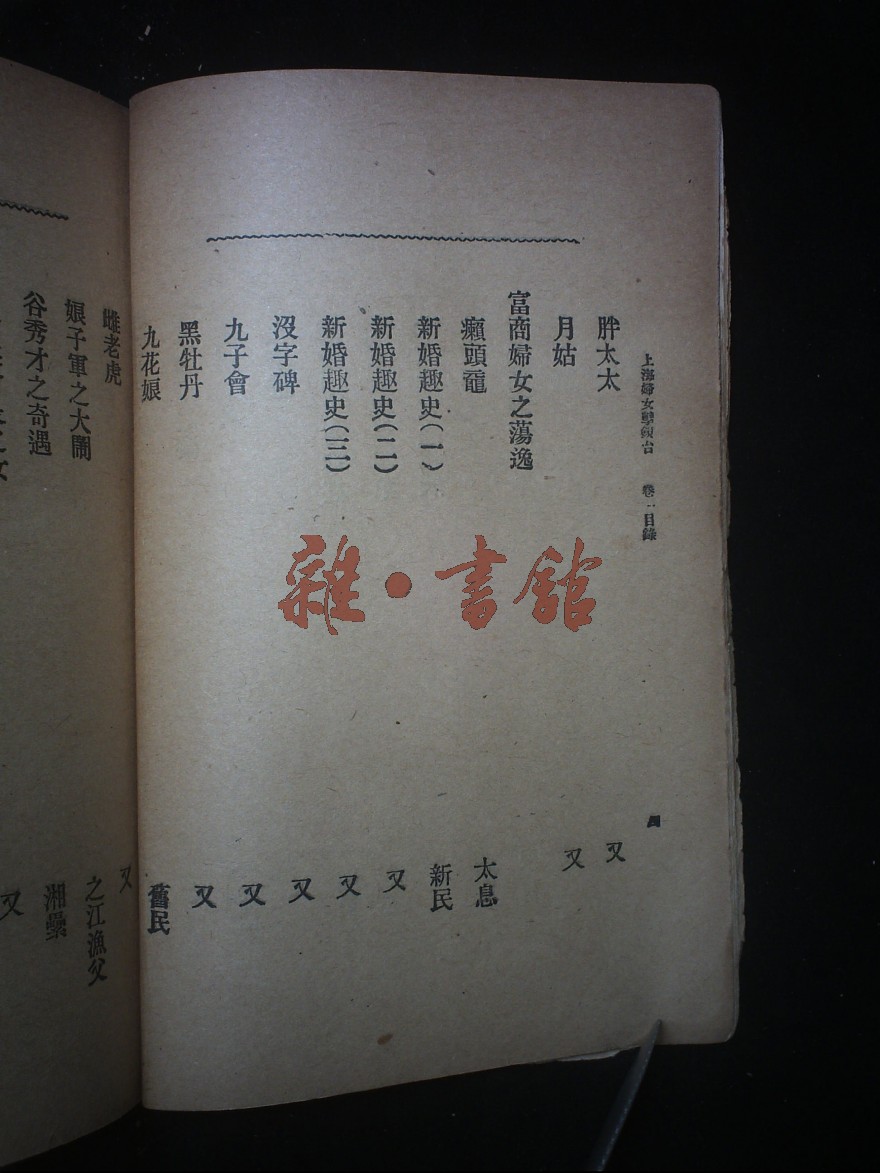 上海婦女孽鏡台 卷一目錄 四
胖太太 又
月姑 又
富商婦女之蕩逸
癩頭黿 太息
新婚趣史(一) 新民
新婚趣史(二) 又
新婚趣史(三) 又
沒字碑 又
九子會 又
黑牡丹 又
九花娘 舊民
雌老虎 又
娘子軍之大鬧 之江漁父
谷秀才之奇遇 湘纍
又
雜•書館